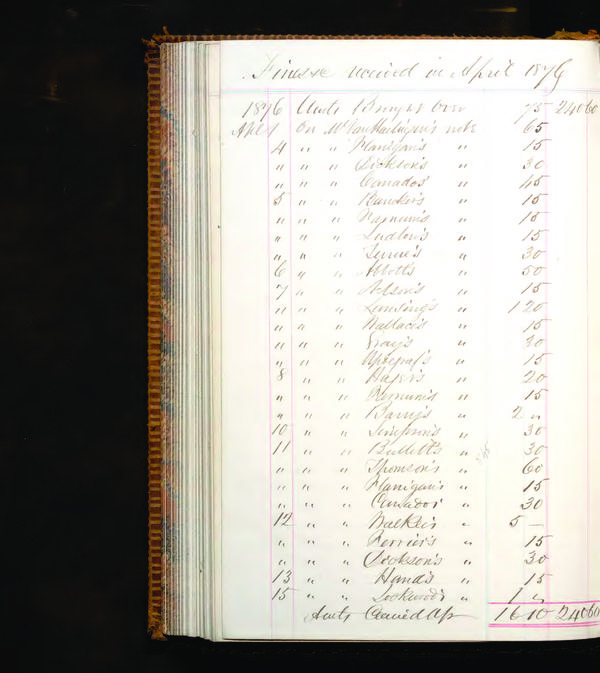 received in April 1876
1876 Amts Brought Over 75 24060
Apl 1 On Mr VanHarlingen's note 65
4 " " Flanigan's " 15
" " " Dickson's " 30
" " " Canados' " 45
5 " " " 15
" " " " 15
" " " Ludlow's " 15
" " " " 30
6 " " Abbott's " 50
7 " " " 15
" " " Lansing's " 1 20
" " " Wallace's " 15
" " " Gray's " 30
" " " Updegraf's " 15
8 " " " 20
" " " " 15
" " " Barry's " 2 "
10 " " Simpson's " 30
11 " " Bullett's " 30
" " " Thomson's " 60
" " " Flanigan's " 15
" " " Canados' " 30
12 " " Walker's " 5 –
" " " Ferrier's " 15
" " " Dickson's " 30
13 " " Hand's " 15
15 " " Lockwood's " 1 "
Amts Carried Up 16 10 24060